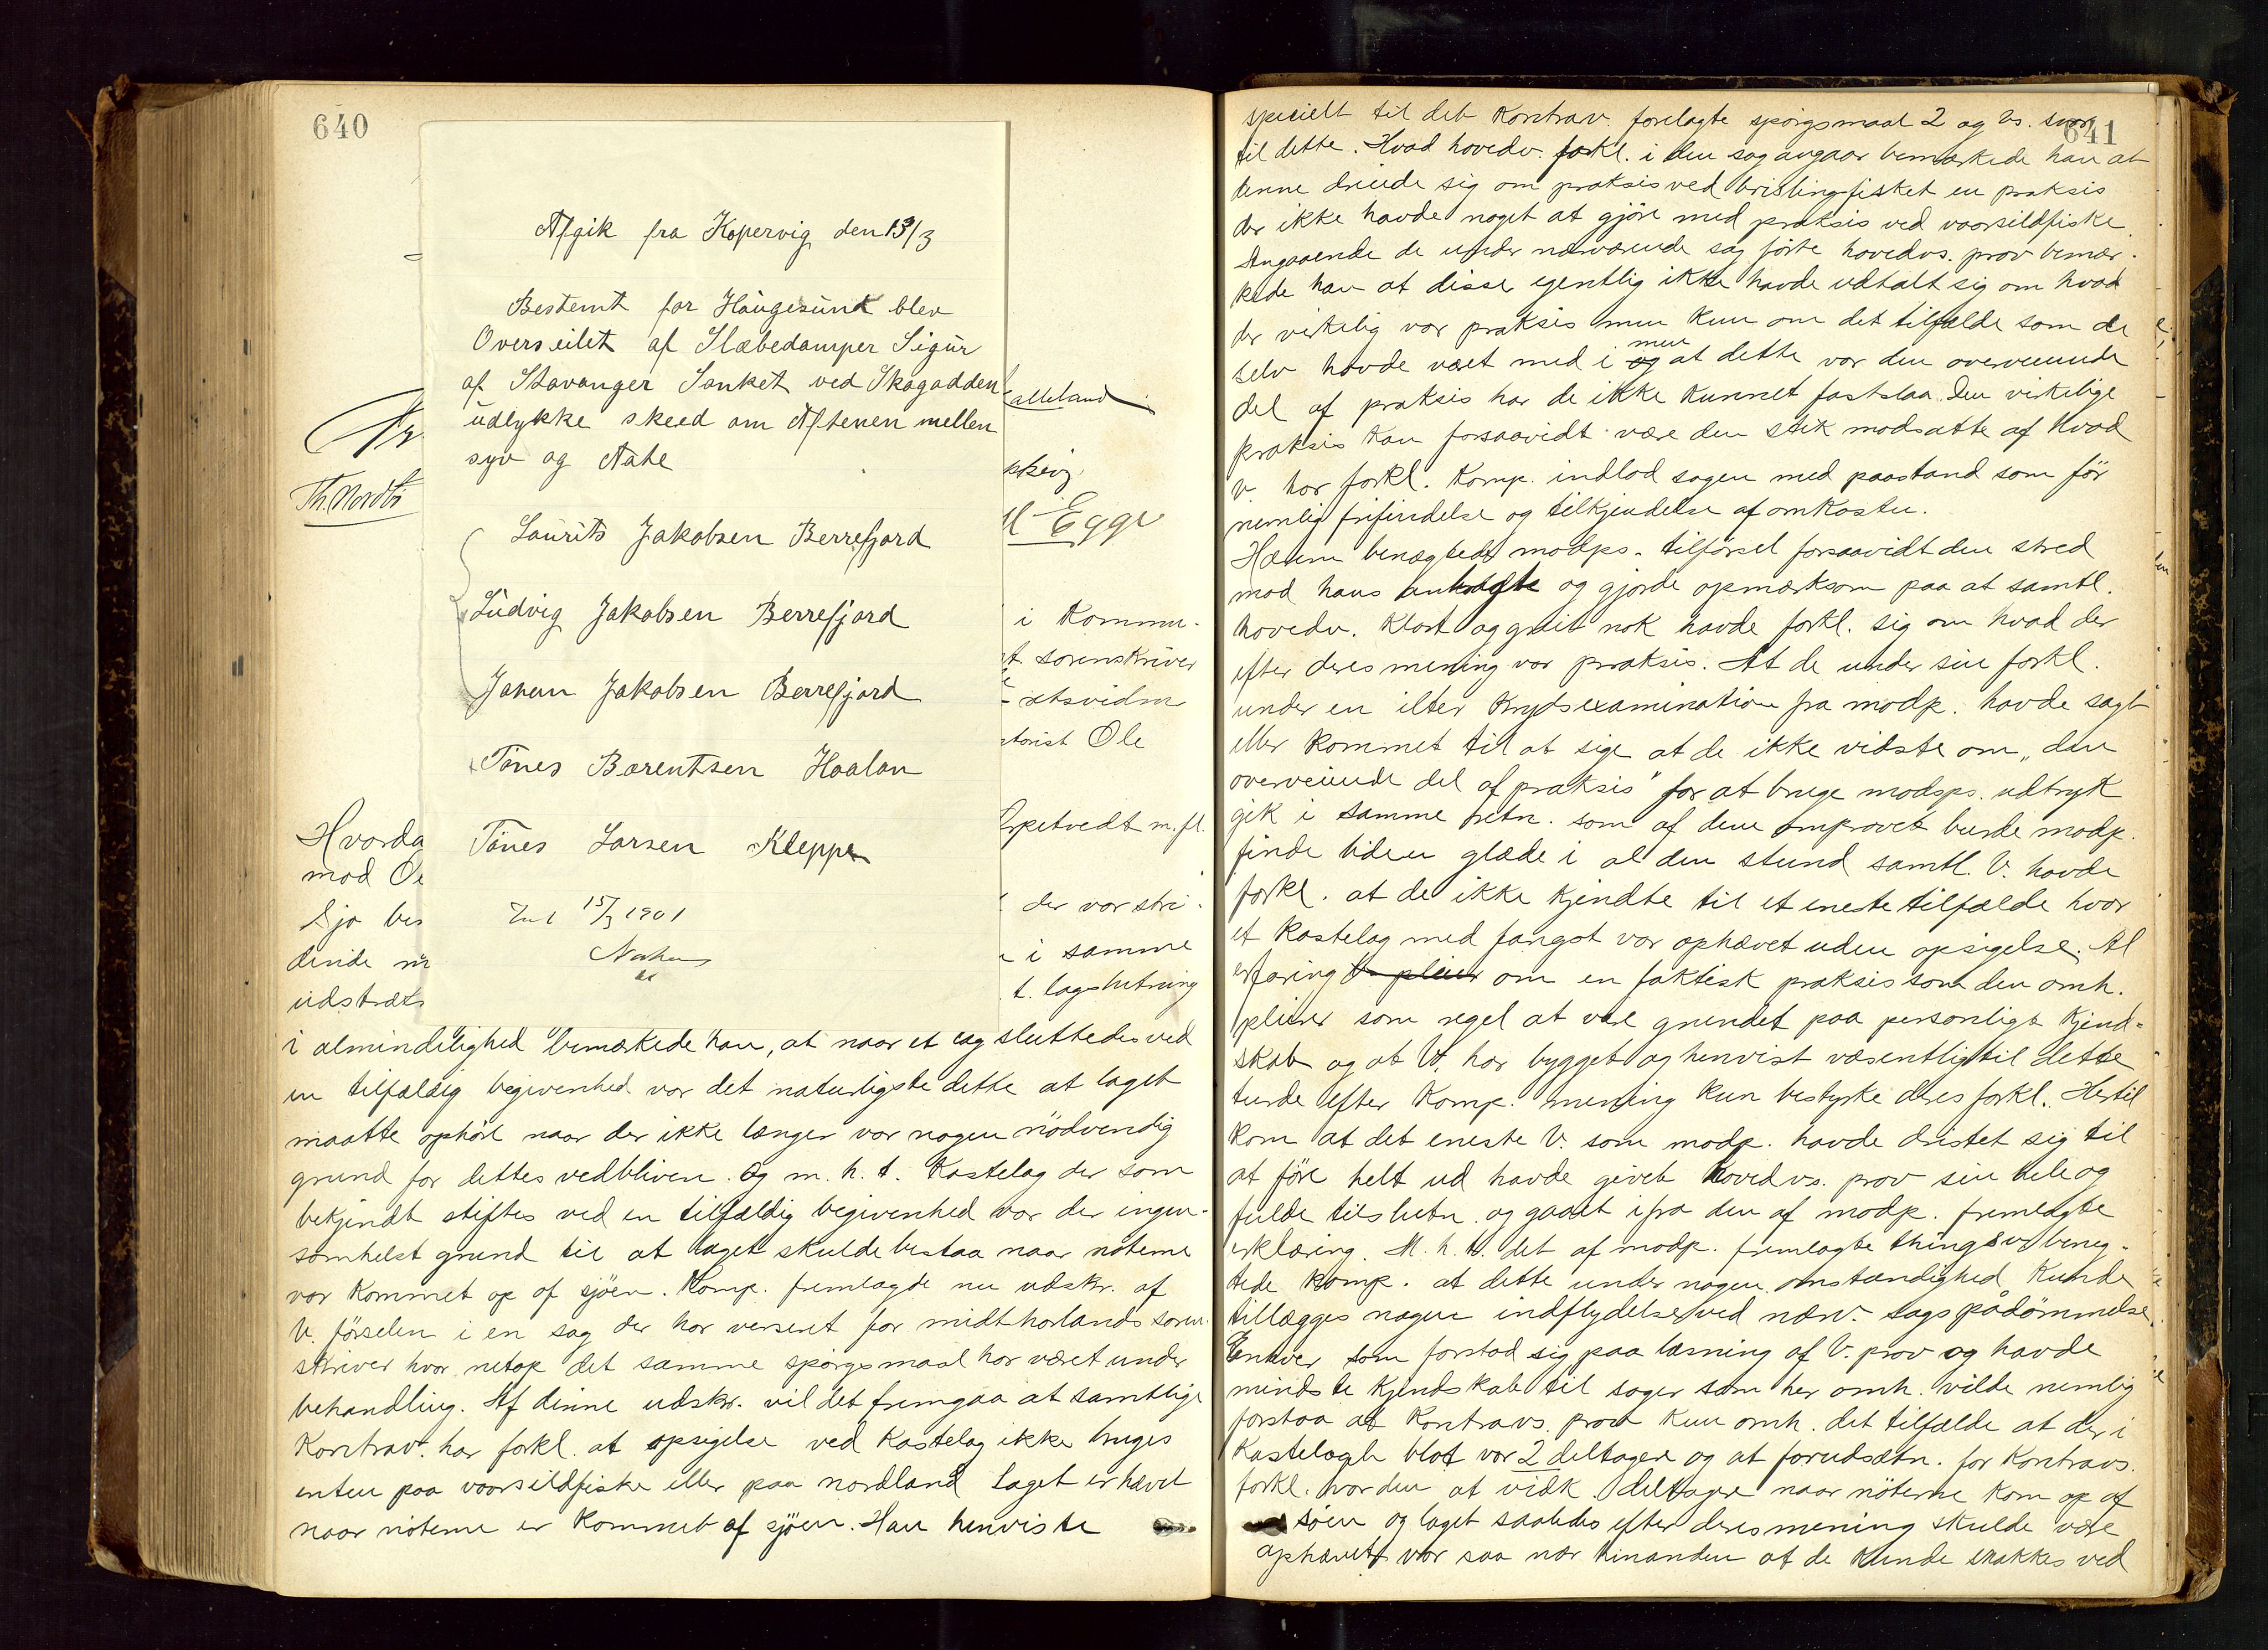 640
Afgik fra Kopervig den 13/3
Bestemt for Haugesund blev
Overseilet af Slæbedamper Sigur
af Stavanger Sanket ved Skagadden
udlykke skeed om Aftenen mellen
syv og Aate
Laurits Jakobsen Berrefjord
Ludvig Jakobsen Berrefjord
Johan Jakobsen Berrefjord
Tönes Barentsen Haalan
Tönes Larsen Kleppe
15/3 1901
Th. Nordbö
alleland
Egge
i Kommu-
t. sorenskriver
-etsvidne
torist Ole
Erpetvedt m. fl.
Hvorda
mod Oe
der var stri-
Sjo be
i samme
dinde m
t. lagslutning
udstræt
i almindelighed bemærkede han, at naar et lag sluttedes ved
en tilfældig begivenhed var det naturligste dette at laget
maatte ophöre naar der ikke længer var nogen nödvendig
grund for dettes vedbliven. Og m. h. t. Kastelag der som
bekjendt stiftes ved en tilfældig begivenhed var der ingen-
somhelst grund til at laget skulde bestaa naar nöterne
var kommet op af sjöen. Komp. fremlagde nu udskr. af
V. förselen i en sag der har verseret for midthorlands soren-
skriver hvor netop det samme spörgsmaal har været under
behandling. Af denne udskr. vil det fremgaa at samtlige
Kontrav. har forkl. at opsigelse ved Kastelag ikke bruges
enten paa vaarsildfiske eller paa nordland Laget er hævet
naar nöterne er kommet af sjöen. Han henviste
641
specielt til det Kontrav. forelagte spörgsmaal 2 og vs. svar
til dette. Hvad hovedv. forkl. i den sag angaar bemærkede han at
denne dreiede sig om praksis ved brislingfisket en praksis
der ikke havde noget at gjöre med praksis ved vaarsildfiske.
Angaaende de under nærværende sag förte hovedvs. prov bemær-
kede han at disse egentlig ikke havde udtalt sig om hvad
der virkelig var praksis men kun om det tilfælde som de
selv havde været med i og men at dette var den overveiende
del af praksis har de ikke kunnet fastslaa. Den virkelige
praksis kan forsaavidt være den stik modsatte af hvad
v. har forkl. Komp. indlod sagen med paastand som för
nemlig frifindelse og tilkjendelse af omkoster.
benægtede modps. tilförsel forsaavidt den stred
mod hans og gjorde opmærksom paa at samtl.
hovedv. klart og greit nok havde forkl. sig om hvad der
efter deres mening var praksis. At de under sin forkl.
under en ilter Krydsexamination fra modp. havde sagt
eller kommet til at sige at de ikke vidste om „den
overveiende del af praksis" for at bruge modps. udtryk
gik i samme retn. som af dem omprovet burde modp.
finde liden glæde i al den stund samtl. V. havde
forkl. at de ikke kjendte til et eneste tilfælde hvor
et Kastelag med fangst var ophævet uden opsigelse. Al
erfaring V. pleier om en faktisk praksis som den omh.
pleier som regel at være grundet paa personligt kjend-
skab og at V. har bygget og henvist væsentlig til dette
turde efter Komp. mening kun bestyrke deres forkl. Hertil
kom at det eneste V. som modp. havde dristet sig til
at före helt ud havde givet hovedvs. prov sin hele og
fulde tilslutn. og gaaet ifra den af modp. fremlagte
erklæring. M. h. t. det af modp. fremlagte thingsv. beneg-
tede komp. at dette under nogen omstændighed kunde
tillægges nogen indflydelse ved nærv. sags pådömmelse.
Enhver som forstod sig paa læsning af V. prov og havde
mindste kjendskab til sager som her omh. vilde nemlig
forstaa at Kontravs. prov kun omh. det tilfælde at der i
Kastelaget blot var 2 deltagere og at forudsætn. for Kontravs.
forkl. var den at vedk. deltagere naar nöterne kom op af
söen og laget saaledes efter deres mening skulde være
ophævet var saa nær hinanden at de kunde snakkes ved